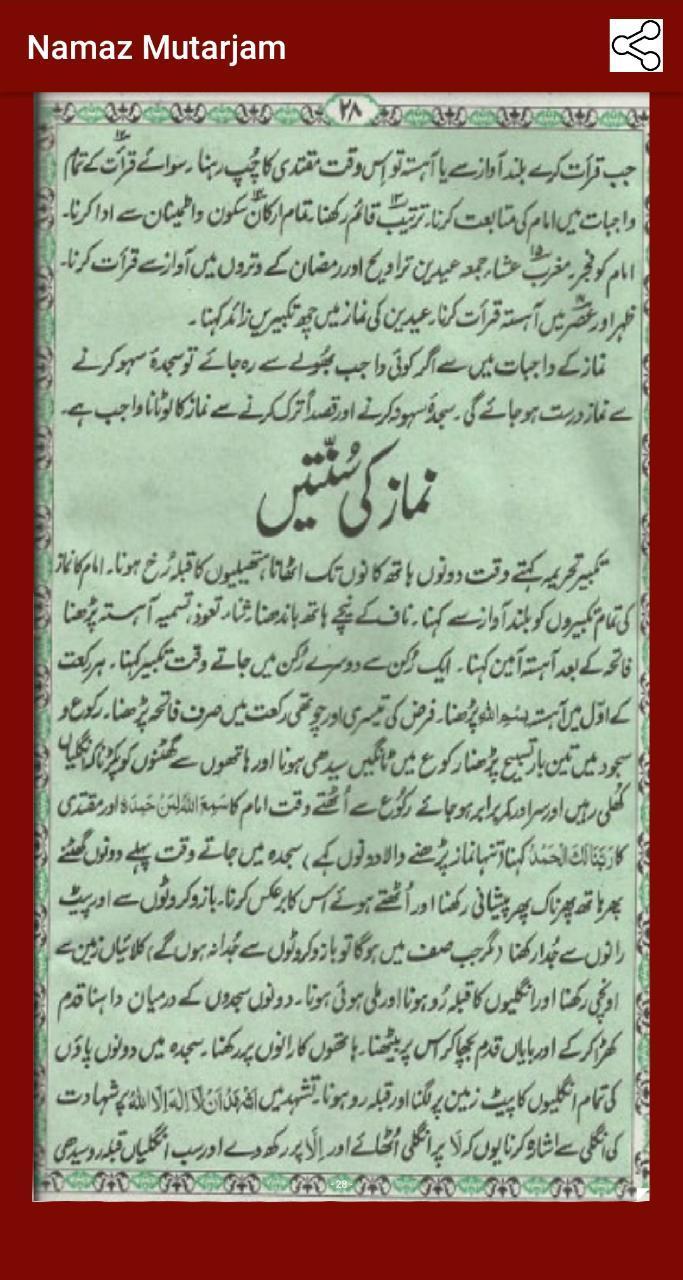 Namaz Mutarjam
۲۸
جب قرأت کرے بلند آواز سے یا آہستہ تو اس وقت مقتدی کا چُپ رہنا۔ سوائے قرأت کے تمام
واجبات میں امام کی متابعت کرنا۔ ترتیب قائم رکھنا۔ تمام ارکان سکون و اطمینان سے ادا کرنا۔
امام کو فجر۔ مغرب عشاء جمعہ عیدین تراویح اور رمضان کے وتروں میں آواز سے قرأت کرنا۔
ظہر اور عصر میں آہستہ قرأت کرنا۔ عیدین کی نماز میں چھ تکبیریں زائد کہنا۔
نماز کے واجبات میں سے اگر کوئی واجب بھولے سے رہ جائے تو سجدۂ سہو کرنے
سے نماز درست ہو جائے گی۔ سجدۂ سہو نہ کرنے اور قصداً ترک کرنے سے نماز کا لوٹانا واجب ہے۔
نماز کی سُنّتیں
تکبیر تحریمہ کہتے وقت دونوں ہاتھ کانوں تک اٹھانا۔ ہتھیلیوں کا قبلہ رُخ ہونا۔ امام کا نماز
کی تمام تکبیروں کو بلند آواز سے کہنا۔ ناف کے نیچے ہاتھ باندھنا۔ ثناء، تعوذ، تسمیہ آہستہ پڑھنا
فاتحہ کے بعد آہستہ آمین کہنا۔ ایک رُکن سے دوسرے رُکن میں جاتے وقت تکبیر کہنا۔ ہر رکعت
کے اوّل میں آہستہ بِسْمِ اللہِ پڑھنا۔ فرض کی تیسری اور چوتھی رکعت میں صرف فاتحہ پڑھنا۔ رکوع و
سجود میں تین بار تسبیح پڑھنا رکوع میں ٹانگیں سیدھی ہونا اور ہاتھوں سے گھٹنوں کو پکڑنا کہ انگلیاں
کھلی رہیں اور سر اور کمر برابر ہو جائے رکوع سے اُٹھتے وقت امام کا سَمِعَ اللہُ لِمَنْ حَمِدَہٗ اور مقتدی
کا رَبَّنَا لَکَ الْحَمْدُ کہنا (تنہا نماز پڑھنے والا دونوں کہے) سجدہ میں جاتے وقت پہلے دونوں گھٹنے
پھر ہاتھ پھر ناک پھر پیشانی رکھنا اور اُٹھتے ہوئے اس کا برعکس کرنا۔ بازو کروٹوں سے اور پیٹ
رانوں سے جُدا رکھنا (مگر جب صف میں ہوگا تو بازو کروٹوں سے جُدا نہ ہوں گے) کلائیاں زمین سے
اونچی رکھنا اور انگلیوں کا قبلہ رُو ہونا اور ملی ہوئی ہونا۔ دونوں سجدوں کے درمیان داہنا قدم
کھڑا کر کے اور بایاں قدم بچھا کر اس پر بیٹھنا۔ ہاتھوں کا رانوں پر رکھنا۔ سجدہ میں دونوں پاؤں
کی تمام انگلیوں کا پیٹ زمین پر لگنا اور قبلہ رو ہونا۔ تشہد میں اَشْھَدُ اَنْ لَّا اِلٰہَ اِلَّا اللہُ پر شہادت
کی انگلی سے اشارہ کرنا یوں کہ لَا پر انگلی اُٹھائے اور اِلَّا پر رکھ دے اور سب انگلیاں قبلہ رو سیدھی
-28-